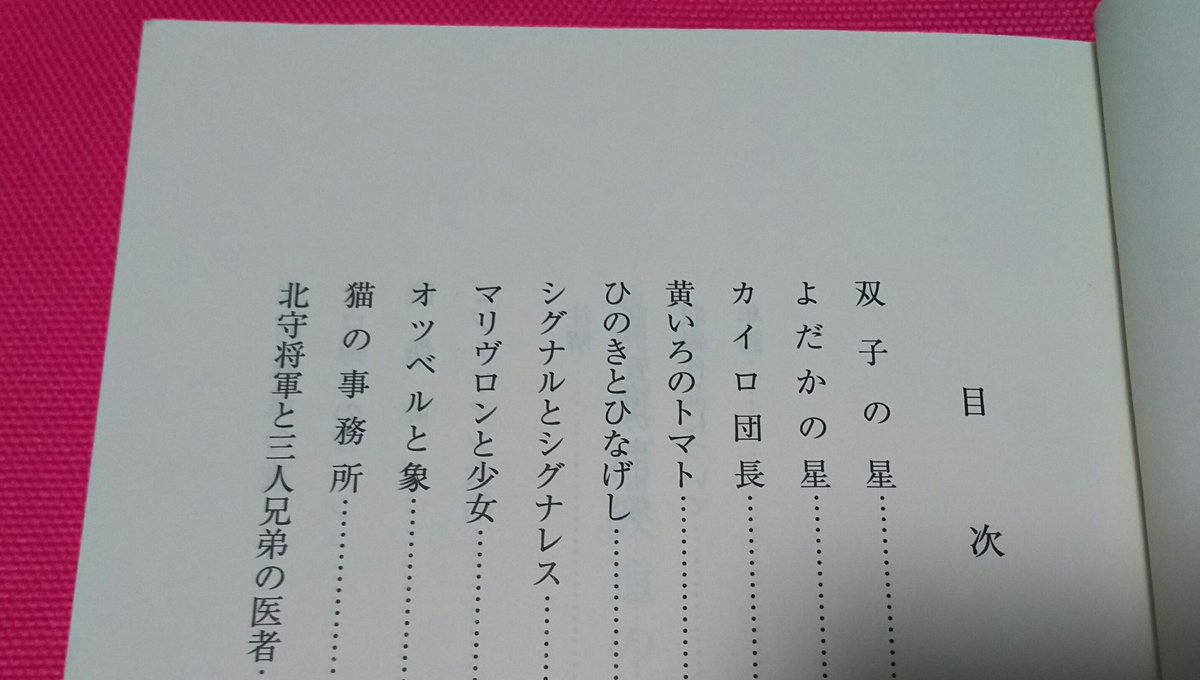 目次
双子の星
よだかの星
カイロ団長
黄いろのトマト
ひのきとひなげし
シグナルとシグナレス
マリヴロンと少女
オツベルと象
猫の事務所
北守将軍と三人兄弟の医者